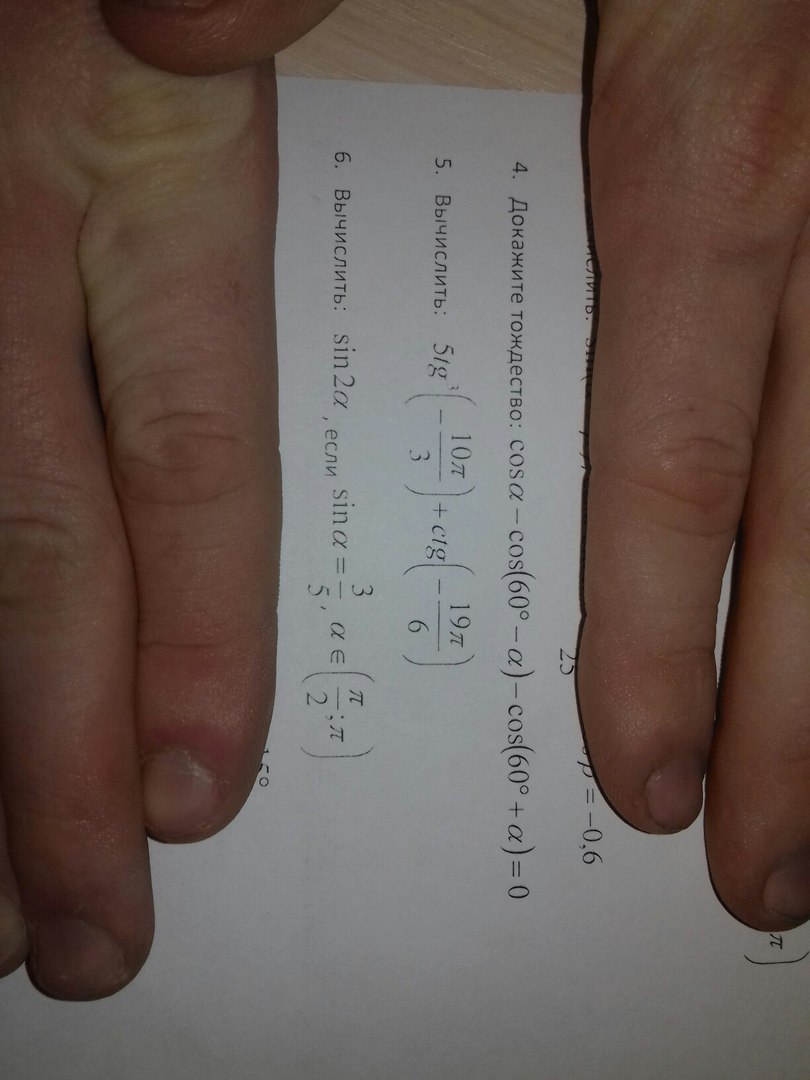 π)
25
β = −0,6
4. Докажите тождество: cosα − cos(60° − α) − cos(60° + α) = 0
5. Вычислить: 5tg³(−10π/3) + ctg(−19π/6)
6. Вычислить: sin2α, если sinα = 3/5, α ∈ (π/2; π)
15°